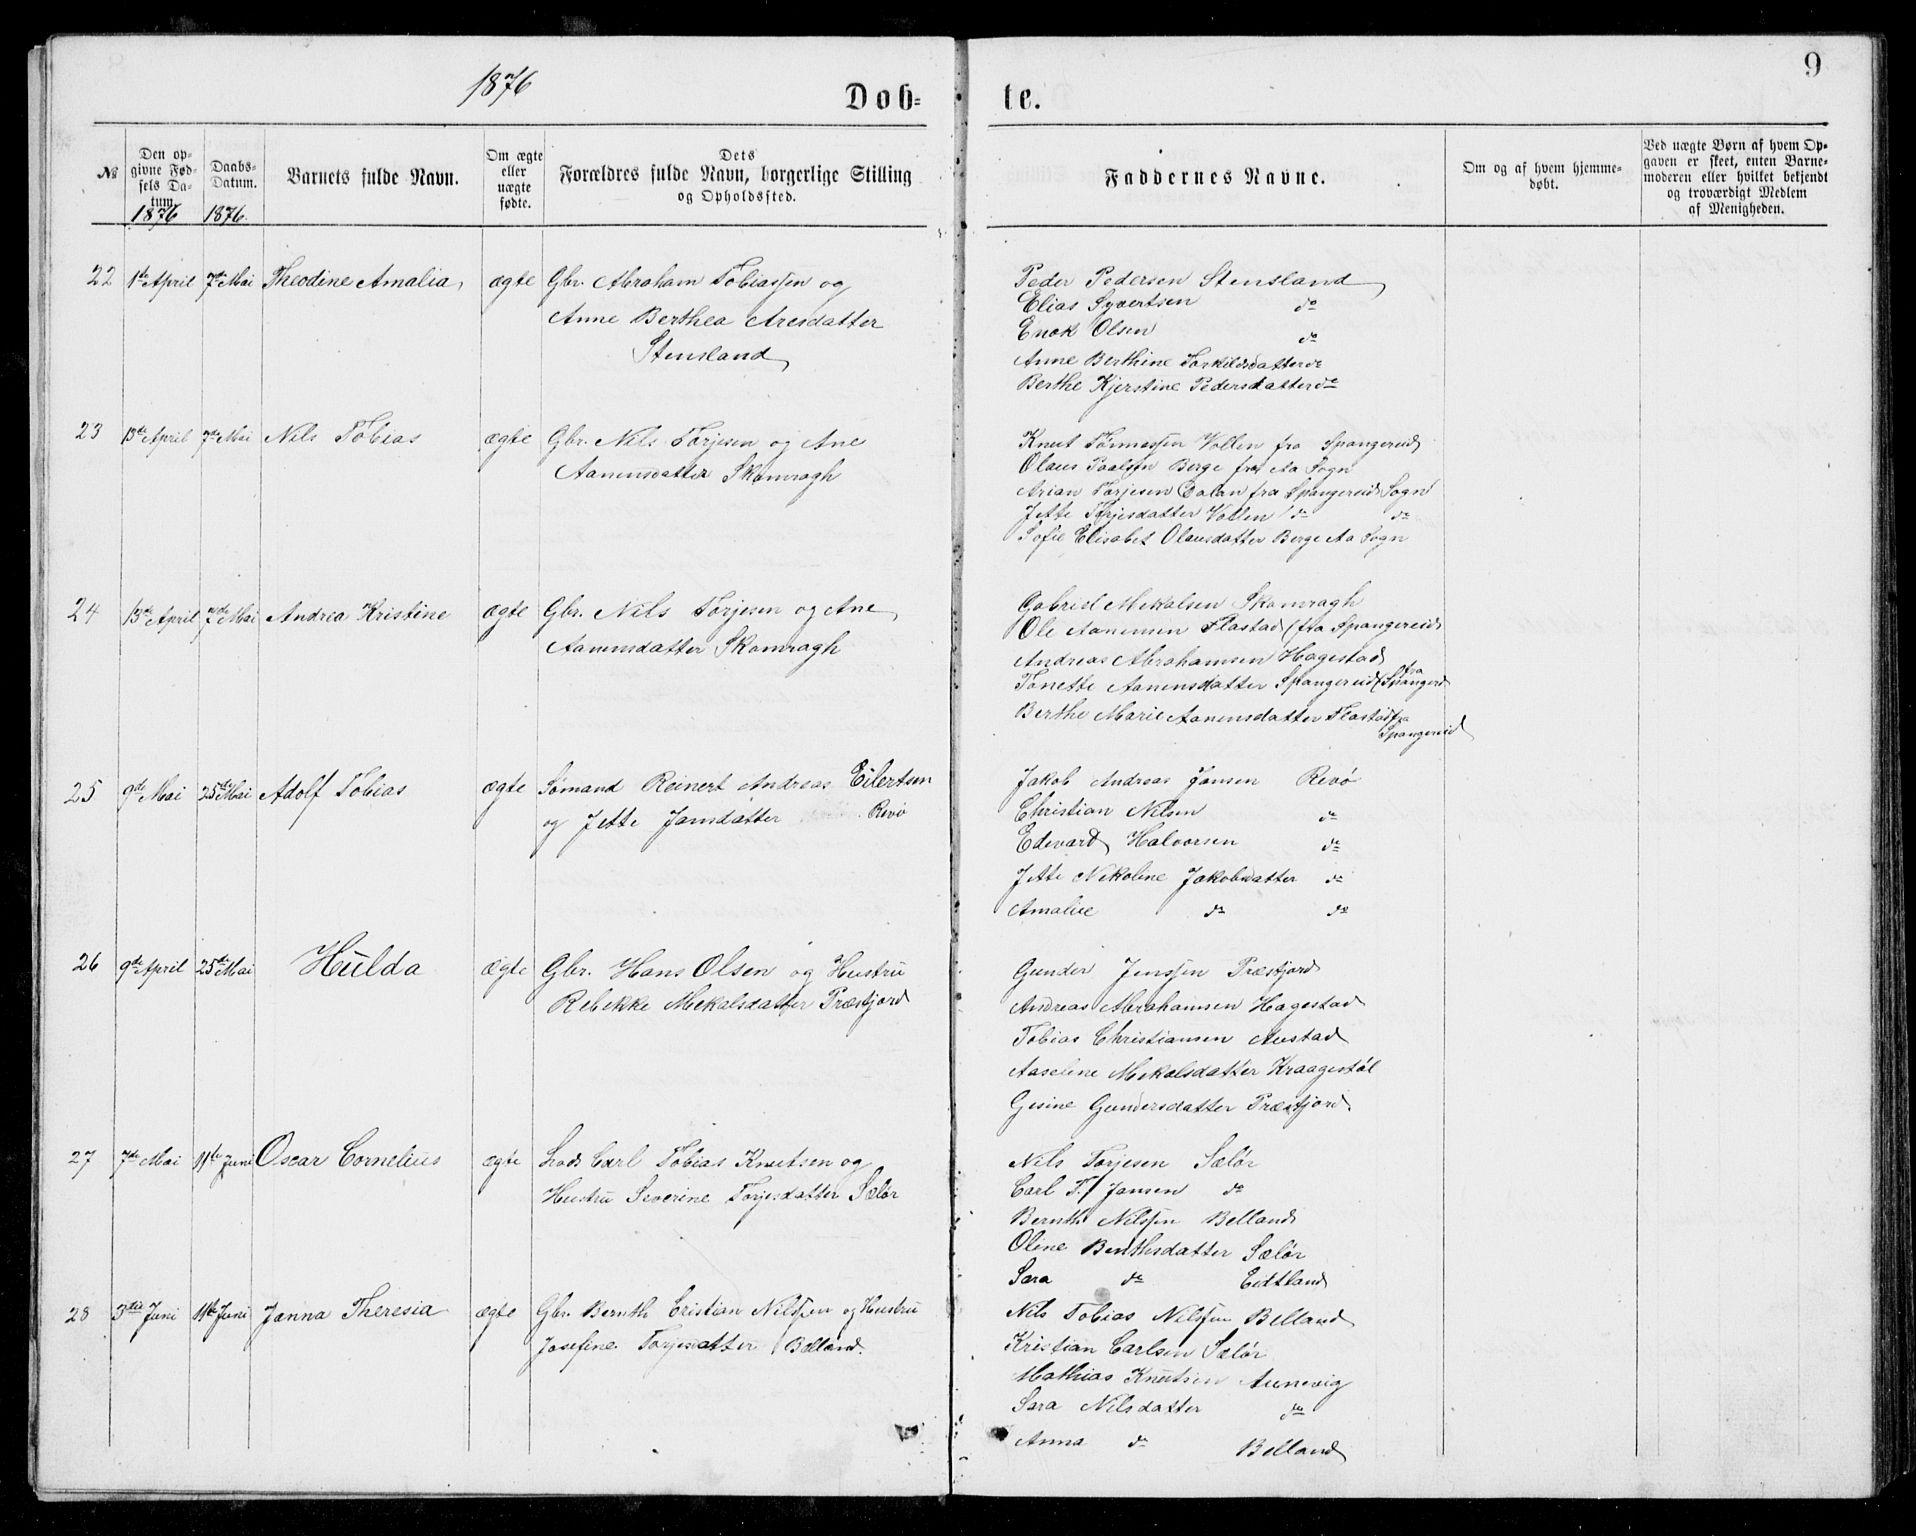 1876
9
Døb-
te.
№
Den op-
givne Fød-
sels Da-
tum.
1876
Daabs-
Datum.
1876.
Barnets fulde Navn.
Om ægte
eller
uægte
fødte.
Dets
Forældres fulde Navn, borgerlige Stilling
og Opholdssted.
Faddernes Navne.
Om og af hvem hjemme-
døbt.
Ved uægte Børn af hvem Op-
gaven er skeet, enten Barne-
moderen eller hvilket bekjendt
og troværdigt Medlem
af Menigheden.
22 1ste April 7de Mai Theodine Amalia, ægte Gbr. Abraham Tobiassen og
Anne Berthea Aresdatter
Stensland
Peder Pedersen Stensland
Elias Syvertsen do
Enok Olsen do
Anne Berthine Torkildsdatter do
Berthe Kjerstine Pedersdatter do
23 13de April 7de Mai Nils Tobias ægte Gbr. Nils Torjesen og Ane
Aanensdatter Skomragh
Knut Tønnessen Vollen fra Spangereid
Olaus Paalsen Berge fra Aa Sogn
Arian Torjesen Dalan fra Spangereids Sogn
Jette Torjesdatter Vollen do do
Sofie Elisabet Olausdatter Berge Aa Sogn
24 13de April 7de Mai Andrea Kristine ægte Gbr. Nils Torjesen og Ane
Aanensdatter Skomragh
Gabriel Mekalsen Skomragh
Ole Aanensen Flastad (fra Spangereid
Andreas Abrahamsen Hagestad
Tonette Aanensdatter Spangereid (fra Spangerd
Berthe Marie Aanensdatter Flastad fra
Spangereid
25 9de Mai 25de Mai Adolf Tobias ægte Sømand Reinert Andreas Eilertsen
og Jette Jansdatter Revø
Jakob Andreas Jansen Revø
Christian Nilsen do
Edevard Halvorsen do
Jette Nekoline Jakobsdatter do
Amalie do do
26 9de April 25de Mai Hulda ægte Gbr. Hans Olsen og Hustru
Rebekke Mekalsdatter Præstjord
Gunder Jenssen Præstjord
Andreas Abrahamsen Hagestad
Tobias Christiansen Austad
Aaseline Mekalsdatter Kraagestøl
Gesine Gundersdatter Præstjord
27 7de Mai 11te Juni Oscar Cornelius ægte Lods Carl Tobias Knutsen og
Hustru Severine Torjesdatter Sælør
Nils Torjesen Sælør
Carl T. Jansen do
Bernth Nilssen Belland
Oline Bernthsdatter Sælør
Sara do Eidtland
28 3die Juni 11te Juni Janna Theresia ægte Gbr. Bernth Cristian Nilssen og Hustru
Josefine Torjesdatter Belland.
Nils Tobias Nilssen Belland
Kristian Carlsen Sælør
Mathias Knutsen Aunevig
Sara Nilsdatter do
Anna do Belland